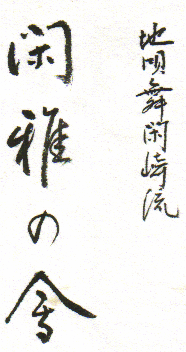 地唄舞閑崎流
閑雅の會